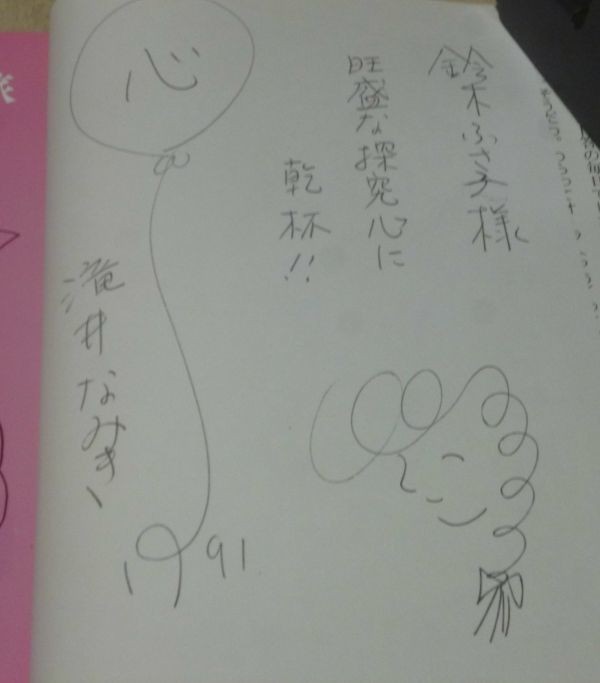 鈴木ふさ子様
旺盛な探究心に
乾杯!!
心
滝井なみき
91